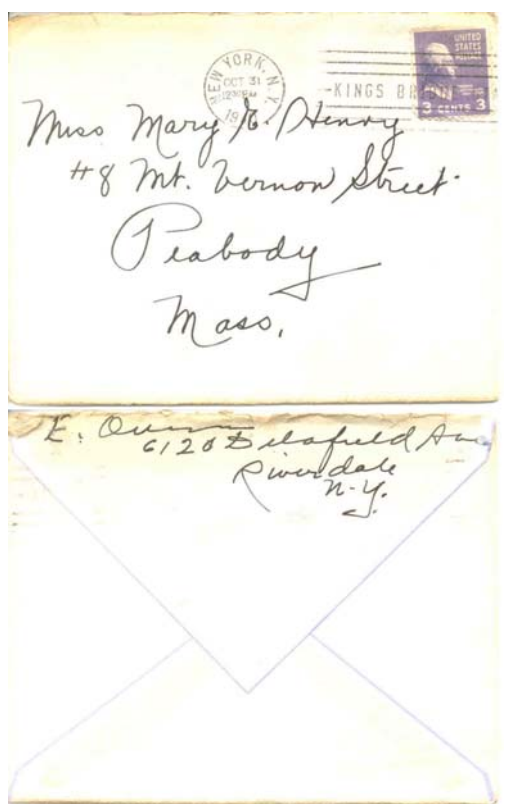 NEW YORK, N.Y.
OCT 31
1230 PM
19
KINGS BRIDGE
UNITED
STATES
POSTAGE
3 CENTS 3
Miss Mary E. Henry
#8 Mt. Vernon Street
Peabody
Mass.
E. Quinn
6120 Delafield Ave
Riverdale
N.Y.